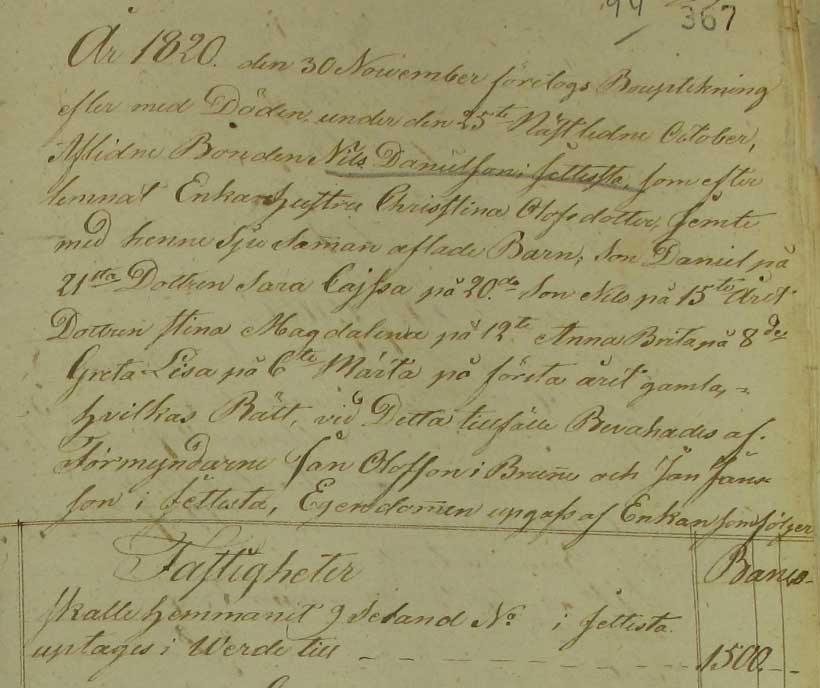 44 367
År 1820. den 30 November förelogs Bouptekning
efter med Döden under den 25te Näst ledne October,
Aflidne Bonden Nils Danielson i Jettesta, som efter
lemnat Enkan hustru Christina Olofsdotter, jemte
med henne Sju Samman aflade Barn, Son Daniel på
21sta Dottren Sara Cajsa på 20.de Son Nils på 15te Året
Dottren Stina Magdalena på 12te Anna Brita på 8de
Greta Lisa på 6te Märta på första året gamla, =
hvilkas Rätt, vid Detta tillfälle Bevakades af
Förmyndarne Jan Olofson i Brunne och Jan Jans-
son i Jettesta, Egendommen upgafs af Enkan som följer
Fastigheter Banco
skatte hemmanet 9 Seland No i Jettesta
uptages i Werde till - - - 1500. - -